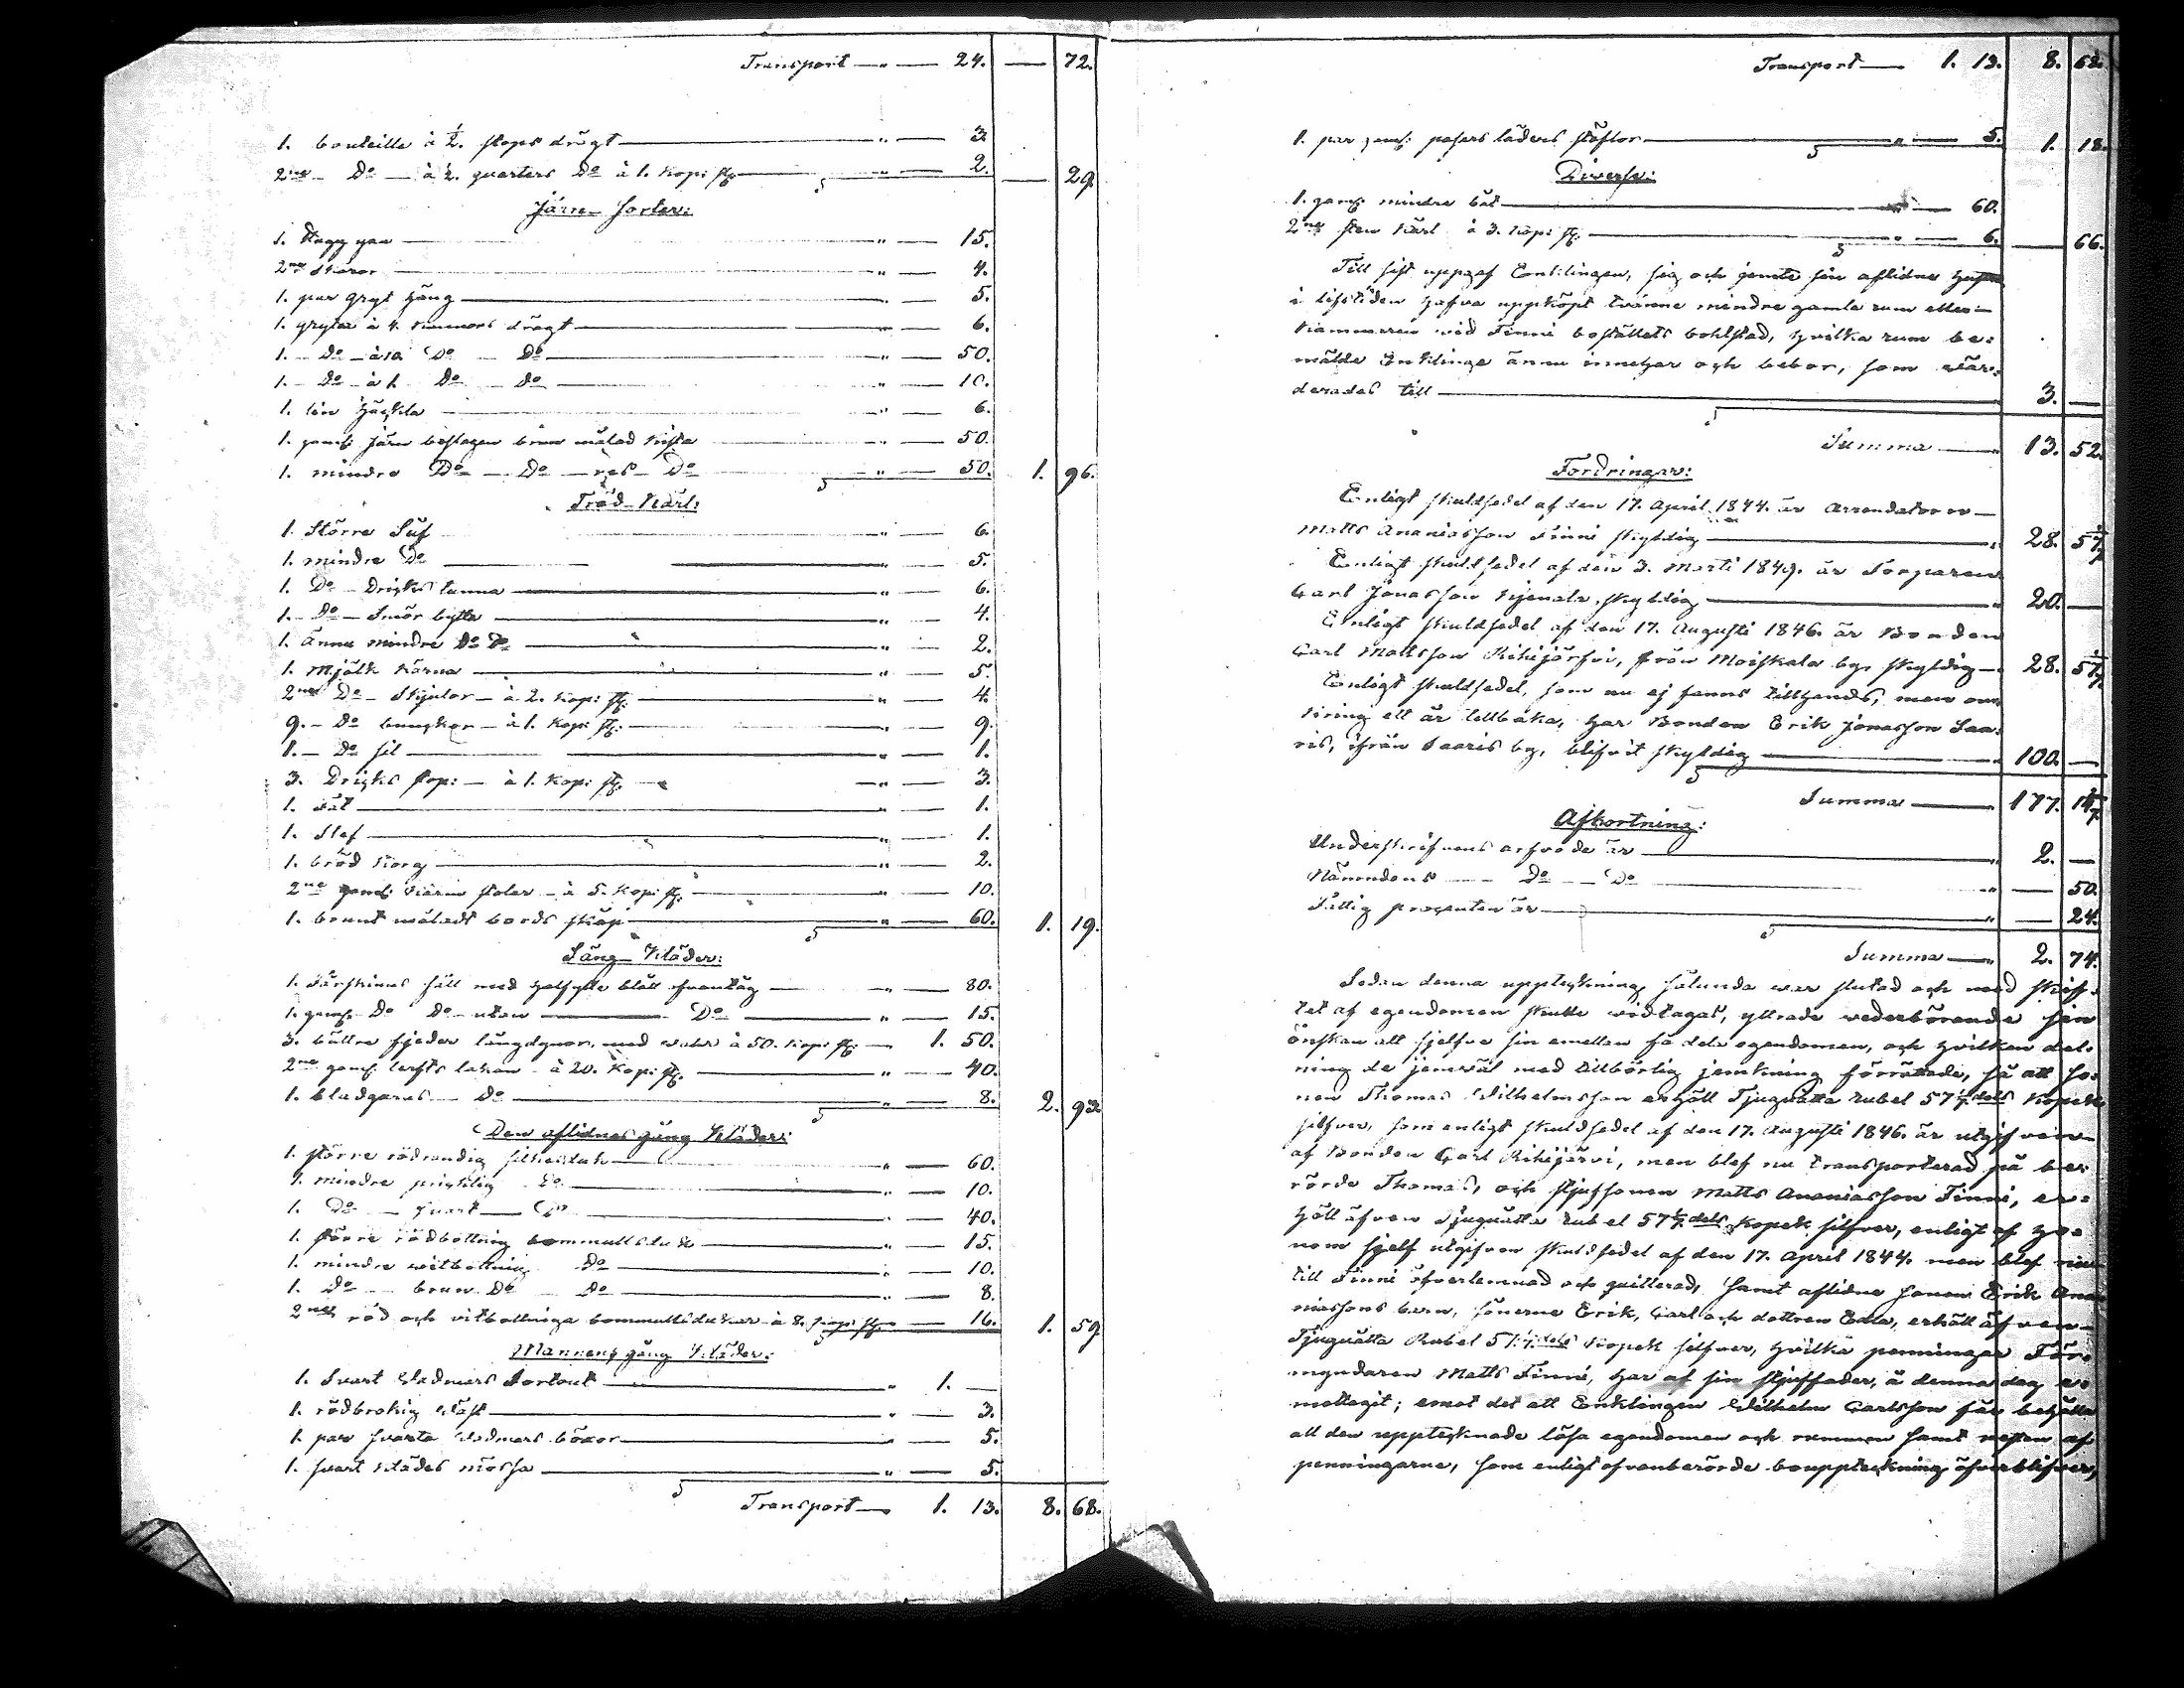 Transport — „ — 24. — 72.
1. bouteille à ½ stops drägt — „ — 3.
2ne Do — à ½ quarters Do à 1. kop: st. — „ — 2. — 29.
Järn-Sorter:
1. — „ — 15.
2ne Skäror — „ — 4.
1. par Gryt häng — „ — 5.
1. gryta à 4. kannors drägt — „ — 6.
1. Do — à 12 Do — Do — „ — 50.
1. Do — à 1. Do — Do — „ — 10.
1. lin häckla — „ — 6.
1. gaml: järn beslagen brun målad kista — „ — 50.
1. mindre Do — Do — Do — „ — 50. 1. 96.
Träd-Kärl:
1. Större Så — „ — 6.
1. mindre Do — „ — 5.
1. Do — Dricks tunna — „ — 6.
1. Do — Smör bytta — „ — 4.
1. Ännu mindre Do Do — „ — 2.
1. Mjölk kärna — „ — 5.
2ne Do — Skjulor — à 2. kop: st. — „ — 4.
9. Do bunckar — à 1. kop: st. — „ — 9.
1. — Do sil — „ — 1.
3. Dricks stop: — à 1. kop: st. — „ — 3.
1. Fat — „ — 1.
1. Slef — „ — 1.
1. bröd korg — „ — 2.
2ne gaml: stolar — à 5. kop: st. — „ — 10.
1. brunt måladt bords skåp — „ — 60. 1. 19.
Säng-Kläder:
1. Fårskinns fäll med halfylle blått — „ — 80.
1. gaml: Do Do utan — Do — „ — 15.
3. bättre fjeder långdynor, med à 50. kop: st. — 1. 50.
2ne gaml: lerfts lakan — à 20. kop: st. — „ — 40.
1. bladgarns — Do — „ — 8. 2. 93.
Den aflidnes gång Kläder:
1. större rödrandig silkesduk — „ — 60.
1. mindre pricklig Do — „ — 10.
1. Do — svart — Do — „ — 40.
1. större rödbottnig bommullsduk — „ — 15.
1. mindre witbottnig Do — „ — 10.
1. Do — brun Do Do — „ — 8.
2ne röd och vitbottniga bommullsdukar à 8. kop: st. — „ — 16. 1. 59.
Mannens gång Kläder:
1. Svart Wadmars Sortout — „ 1. —
1. rödbrokig Wäst — „ — 3.
1. par svarta Wadmars böxor — „ — 5.
1. svart klädes mössa — „ — 5.
Transport — 1. 13. 8. 68.
Transport — 1. 13. 8. 68.
1. par gaml: läders stöflor — „ — 5. 1. 18.
Diverse:
1. gaml: mindre båt — „ — 60.
2ne sten kärl à 3. kop: st. — „ — 6. — 66.
Till sist uppgaf Enklingen, sig och jemte sin aflidne hustru
i lifstiden hafva uppköpt tvänne mindre gamla rum eller
kammaren vid Finni boställets bohlstad, hvilka rum be-
mälde Enklinge ännu innehar och bebor, som vär-
derades till — 3. —
Summa — 13. 52.
Fordringar:
Enligt skuldsedel af den 17. April 1844. är Arrendatoren
Matts Ananiasson Finni skyldig — „ 28. 57 1/7
Enligt skuldsedel af den 3. Marti 1849. är Torparen
Carl Jonasson skyldig — „ 20. —
Enligt skuldsedel af den 17. Augusti 1846. är Bonden
Carl Mattsson Rihijärfvi, från Moiskala by, skyldig — 28. 57 1/7
Enligt skuldsedel, som nu ej fanns tillhands, men om-
kring ett år tillbaka, har Bonden Erik Jonasson Saa-
ris, ifrån Saaris by, blifvit skyldig — „ 100. —
Summa — 177. 14 2/7
Afkortning:
Underskrifvens arfvode är — „ 2. —
Nämndens — Do — Do — „ — 50.
Fattig procenten är — „ — 24.
Summa — „ 2. 74.
Sedan denna uppteckning sålunda war slutad och med skift-
tet af egendomen skulle widtagas, yttrade vederbörande sin
önskan att sjelfve sin emellan få dela egendomen, och hvilken del-
ning de jemväl med tillbörlig jemkning förrättade, så att So-
nen Thomas Wilhelmsson erhöll Tjuguåtta rubel 57 1/7 dels kopek
silfver, som enligt skuldsedel af den 17. Augusti 1846. är utgifven
af Bonden Carl Rihijärvi, men blef nu transporterad på be-
rörde Thomas, och stjufsonen Matts Ananiasson Finni, er-
höll äfven Tjuguåtta rubel 57 1/7 dels kopek silfver, enligt af ho-
nom sjelf utgifven skuldsedel af den 17. April 1844. men blef nu
till Finni öfverlemnad och quitterad, samt aflidne sonen Erik Ana-
niassons barn, sönerne Erik, Carl och dottren Eda, erhöll äfven
Tjuguåtta Rubel 57 1/7 dels kopek silfver, hvilka penningar För-
myndaren Matts Finni, har af sin stjuffader, å denna dag e-
mottagit; emot det att Enklingen Wilhelm Carlsson får behålla
all den uppteckande lösa egendomen och rummen samt resten af
penningarne, som enligt ofvanberörde bouppteckning öfverblifver,